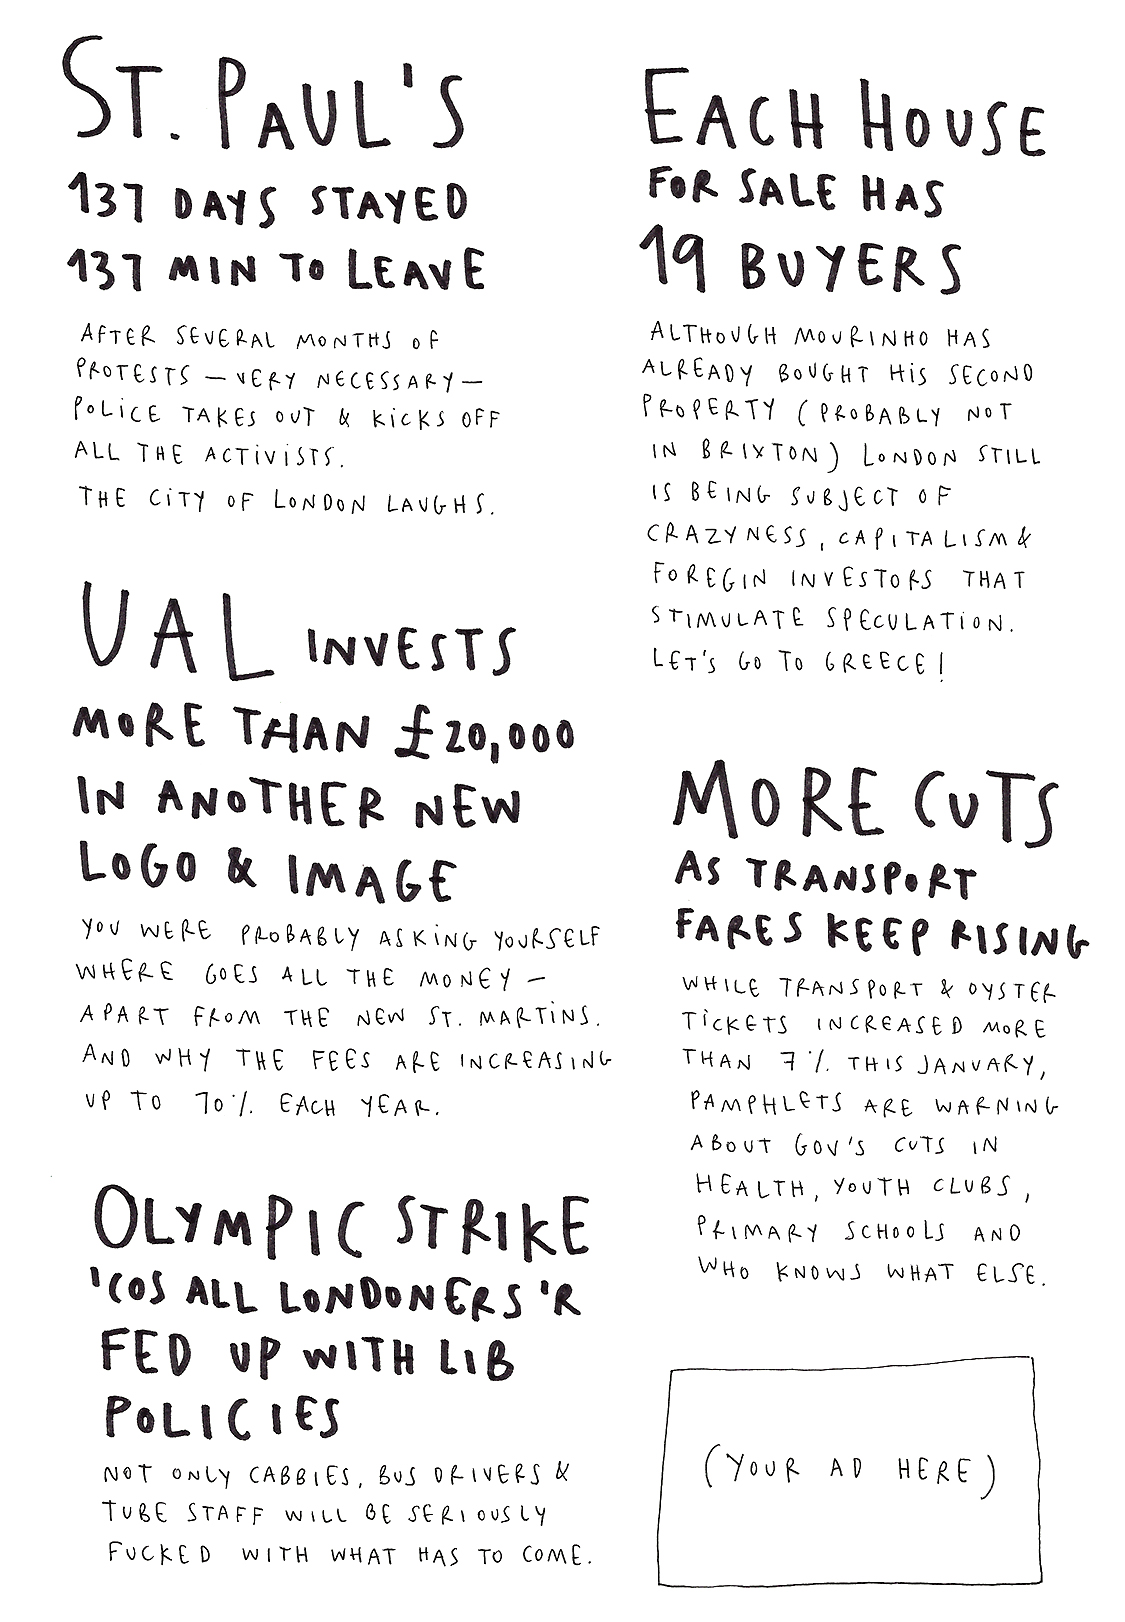 ST. PAUL'S
137 DAYS STAYED
137 MIN TO LEAVE
AFTER SEVERAL MONTHS OF
PROTESTS — VERY NECESSARY —
POLiCE TAKES OUT & KiCKS OFF
ALL THE ACTiViSTS.
THE CiTY OF LONDON LAUGHS.
UAL INVESTS
MORE THAN £20,000
IN ANOTHER NEW
LOGO & IMAGE
YOU WERE PROBABLY ASKiNG YOURSELF
WHERE GOES ALL THE MONEY —
APART FROM THE NEW ST. MARTiNS.
AND WHY THE FEES ARE INCREASING
UP TO 70%. EACH YEAR.
OLYMPIC STRIKE
'COS ALL LONDONERS 'R
FED UP WITH LIB
POLICIES
NOT ONLY CABBIES, BUS DRIVERS &
TUBE STAFF WILL BE SERIOUSLY
FUCKED WITH WHAT HAS TO COME.
EACH HOUSE
FOR SALE HAS
19 BUYERS
ALTHOUGH MOURINHO HAS
ALREADY BOUGHT HiS SECOND
PROPERTY (PROBABLY NOT
IN BRIXTON) LONDON STILL
IS BEING SUBJECT OF
CRAZYNESS, CAPITALISM &
FOREGIN INVESTORS THAT
STIMULATE SPECULATiON.
LET'S GO TO GREECE!
MORE CUTS
AS TRANSPORT
FARES KEEP RISING
WHILE TRANSPORT & OYSTER
TiCKETS INCREASED MORE
THAN 7%. THIS JANUARY,
PAMPHLETS ARE WARNING
ABOUT GOV'S CUTS IN
HEALTH, YOUTH CLUBS,
PRIMARY SCHOOLS AND
WHO KNOWS WHAT ELSE.
(YOUR AD HERE)